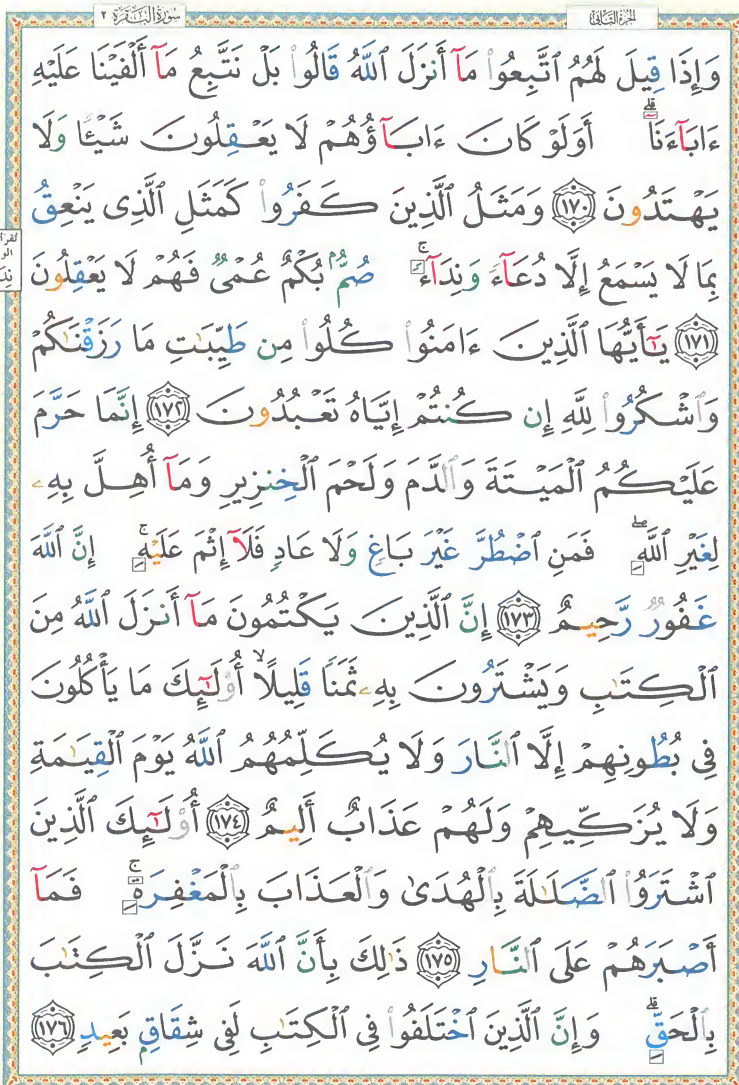 سُورَةُ البَقَرَةِ ٢
الجُزءُ الثَّانِي
وَإِذَا قِيلَ لَهُمُ ٱتَّبِعُوا۟ مَآ أَنزَلَ ٱللَّهُ قَالُوا۟ بَلْ نَتَّبِعُ مَآ أَلْفَيْنَا عَلَيْهِ
ءَابَآءَنَآ ۗ أَوَلَوْ كَانَ ءَابَآؤُهُمْ لَا يَعْقِلُونَ شَيْـًٔا وَلَا
يَهْتَدُونَ ١٧٠ وَمَثَلُ ٱلَّذِينَ كَفَرُوا۟ كَمَثَلِ ٱلَّذِى يَنْعِقُ
بِمَا لَا يَسْمَعُ إِلَّا دُعَآءً وَنِدَآءً ۚ صُمٌّۢ بُكْمٌ عُمْىٌ فَهُمْ لَا يَعْقِلُونَ
١٧١ يَـٰٓأَيُّهَا ٱلَّذِينَ ءَامَنُوا۟ كُلُوا۟ مِن طَيِّبَـٰتِ مَا رَزَقْنَـٰكُمْ
وَٱشْكُرُوا۟ لِلَّهِ إِن كُنتُمْ إِيَّاهُ تَعْبُدُونَ ١٧٢ إِنَّمَا حَرَّمَ
عَلَيْكُمُ ٱلْمَيْتَةَ وَٱلدَّمَ وَلَحْمَ ٱلْخِنزِيرِ وَمَآ أُهِلَّ بِهِۦ
لِغَيْرِ ٱللَّهِ ۖ فَمَنِ ٱضْطُرَّ غَيْرَ بَاغٍ وَلَا عَادٍ فَلَآ إِثْمَ عَلَيْهِ ۚ إِنَّ ٱللَّهَ
غَفُورٌ رَّحِيمٌ ١٧٣ إِنَّ ٱلَّذِينَ يَكْتُمُونَ مَآ أَنزَلَ ٱللَّهُ مِنَ
ٱلْكِتَـٰبِ وَيَشْتَرُونَ بِهِۦ ثَمَنًا قَلِيلًا ۙ أُو۟لَـٰٓئِكَ مَا يَأْكُلُونَ
فِى بُطُونِهِمْ إِلَّا ٱلنَّارَ وَلَا يُكَلِّمُهُمُ ٱللَّهُ يَوْمَ ٱلْقِيَـٰمَةِ
وَلَا يُزَكِّيهِمْ وَلَهُمْ عَذَابٌ أَلِيمٌ ١٧٤ أُو۟لَـٰٓئِكَ ٱلَّذِينَ
ٱشْتَرَوُا۟ ٱلضَّلَـٰلَةَ بِٱلْهُدَىٰ وَٱلْعَذَابَ بِٱلْمَغْفِرَةِ ۚ فَمَآ
أَصْبَرَهُمْ عَلَى ٱلنَّارِ ١٧٥ ذَٰلِكَ بِأَنَّ ٱللَّهَ نَزَّلَ ٱلْكِتَـٰبَ
بِٱلْحَقِّ ۗ وَإِنَّ ٱلَّذِينَ ٱخْتَلَفُوا۟ فِى ٱلْكِتَـٰبِ لَفِى شِقَاقٍۭ بَعِيدٍ ١٧٦